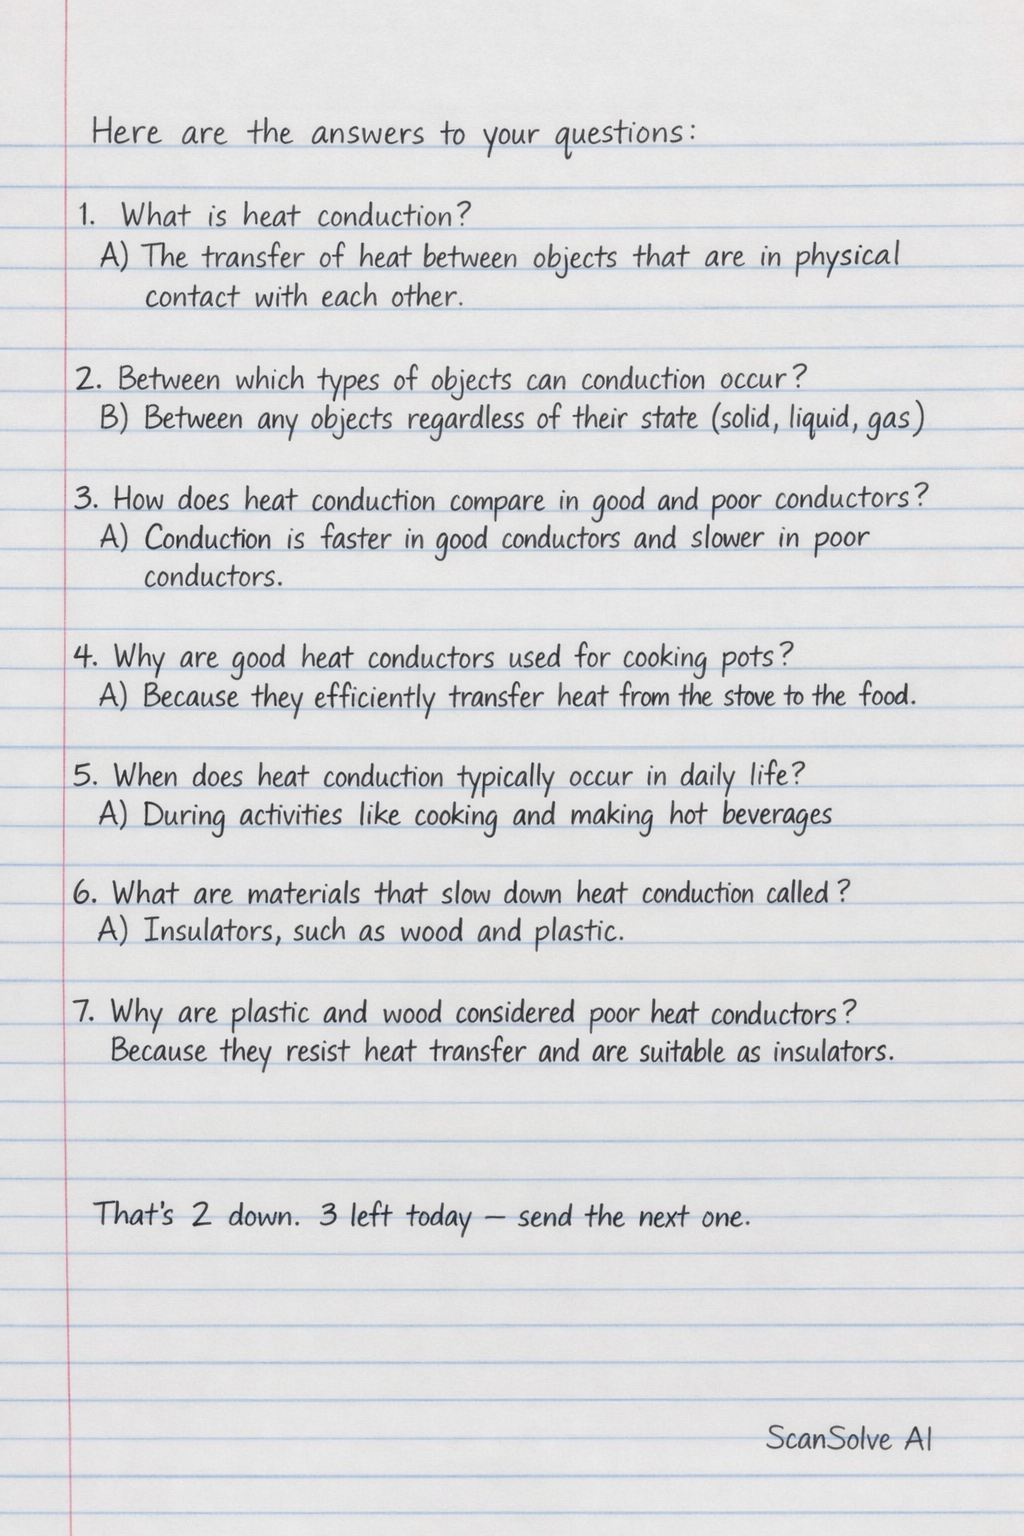 Here are the answers to your questions:
1. What is heat conduction?
A) The transfer of heat between objects that are in physical
contact with each other.
2. Between which types of objects can conduction occur?
B) Between any objects regardless of their state (solid, liquid, gas)
3. How does heat conduction compare in good and poor conductors?
A) Conduction is faster in good conductors and slower in poor
conductors.
4. Why are good heat conductors used for cooking pots?
A) Because they efficiently transfer heat from the stove to the food.
5. When does heat conduction typically occur in daily life?
A) During activities like cooking and making hot beverages
6. What are materials that slow down heat conduction called?
A) Insulators, such as wood and plastic.
7. Why are plastic and wood considered poor heat conductors?
Because they resist heat transfer and are suitable as insulators.
That's 2 down. 3 left today — send the next one.
ScanSolve AI